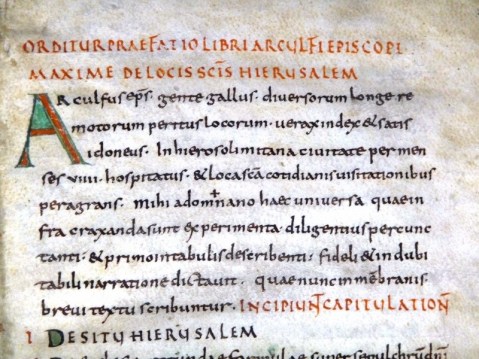 ORDITUR PRAEFATIO LIBRI ARCULFI EPISCOPI
MAXIME DE LOCIS SCIS HIERUSALEM
Arculfus eps gente gallus diversorum longe re
motorum peritus locorum · verax index & satis
idoneus · In hierosolimitana civitate per men
ses viiii · hospitatus · & loca sca cotidianis visitationibus
peragrans · Mihi adomnano haec universa quae in
fra craxanda sunt experimenta · diligentius percunc
tanti · & primo in tabulis describenti · fideli & indubi
tabili narratione dictavit · quae nunc in mebranis
brevi textu scribuntur · INCIPIUNT CAPITULATION
I DE SITU HIERUSALEM